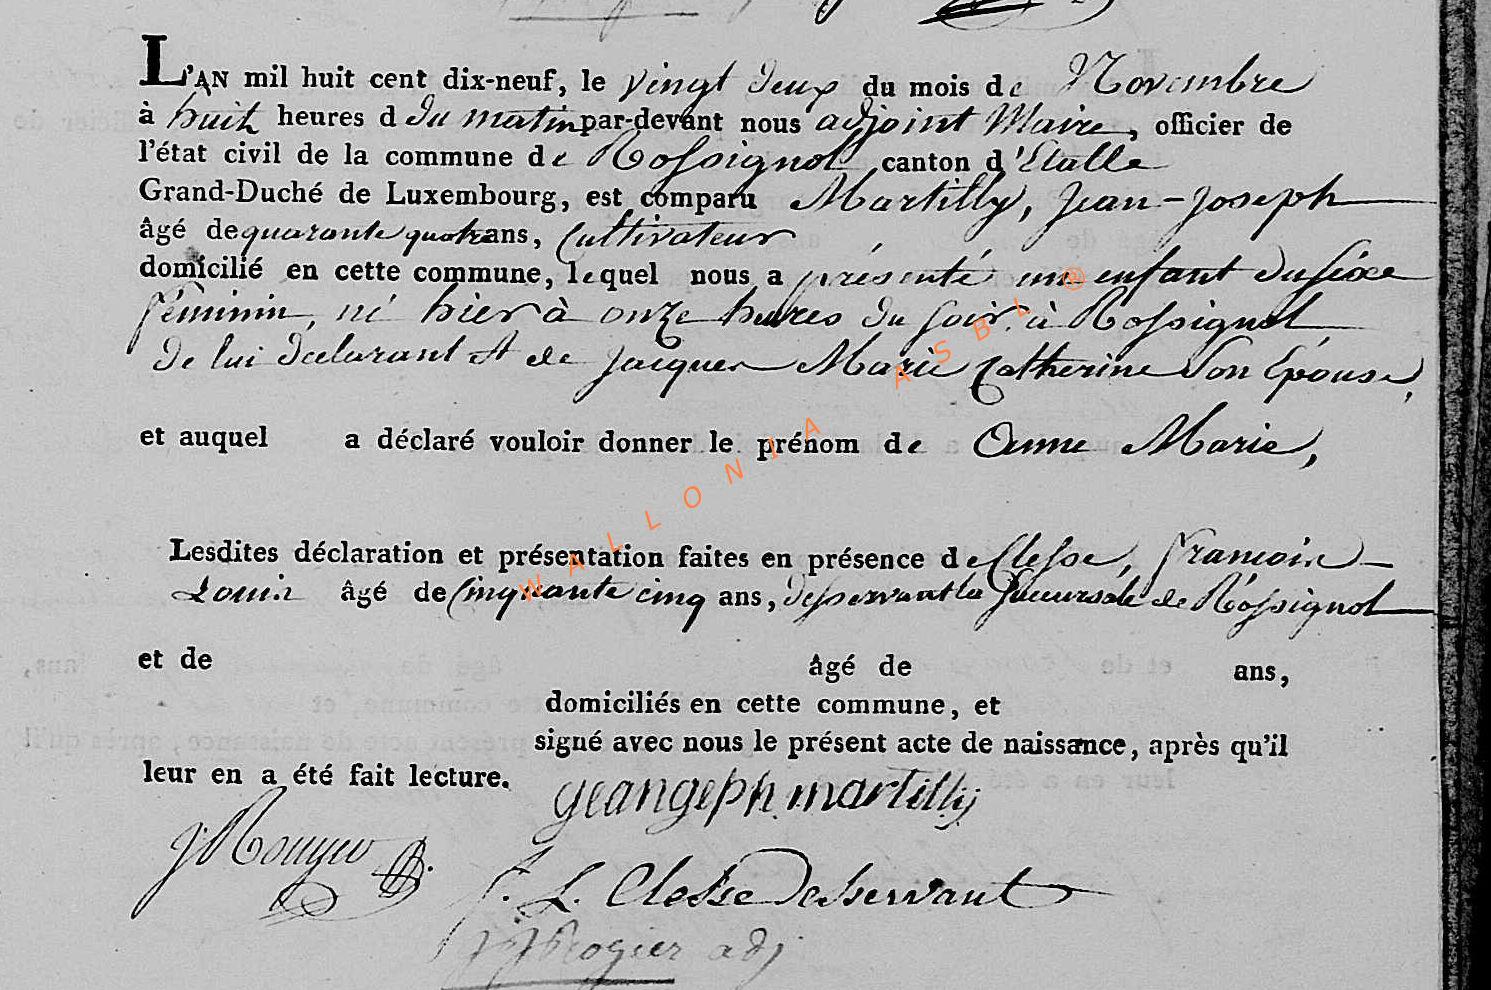 L'AN mil huit cent dix-neuf, le vingt deux du mois de Novembre
à huit heures d du matin par-devant nous adjoint Maire, officier de
l'état civil de la commune de Rossignol canton d'Etalle
Grand-Duché de Luxembourg, est comparu Martilly, Jean-Joseph
âgé de quarante quatre ans, Cultivateur
domicilié en cette commune, lequel nous a présenté un enfant du sèxe
féminin, né hier à onze heures du soir à Rossignol
de lui declarant et de Jacques Marie Catherine Son Epouse,
et auquel a déclaré vouloir donner le prénom de Anne Marie,
Lesdites déclaration et présentation faites en présence de Clesse, francois
Louis âgé de Cinquante cinq ans, desservant la Succursale de Rossignol
et de âgé de ans,
domiciliés en cette commune, et
signé avec nous le présent acte de naissance, après qu'il
leur en a été fait lecture.
geangeph martilly
f. L. Clesse Desservant
Rogier adj
WALLONIA ASBL ®